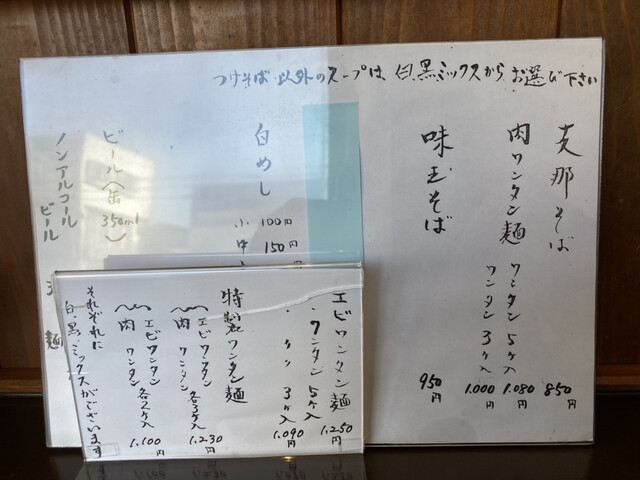 つけそば以外のスープは 白、黒ミックスからお選び下さい
支那そば 850円
肉ワンタン麺 ワンタン5ヶ入 1,080円
ワンタン3ヶ入 1,000円
味玉そば 950円
白めし
小 100円
中 150円
ビール(缶350ml)
ノンアルコール
ビール
麺
エビワンタン麺
ワンタン5ヶ入 1,250円
〃 3ヶ入 1,090円
特製ワンタン麺
エビワンタン 肉ワンタン 各3ヶ入 1,230円
エビワンタン 肉ワンタン 各2ヶ入 1,100円
それぞれに
白、黒ミックスがございます